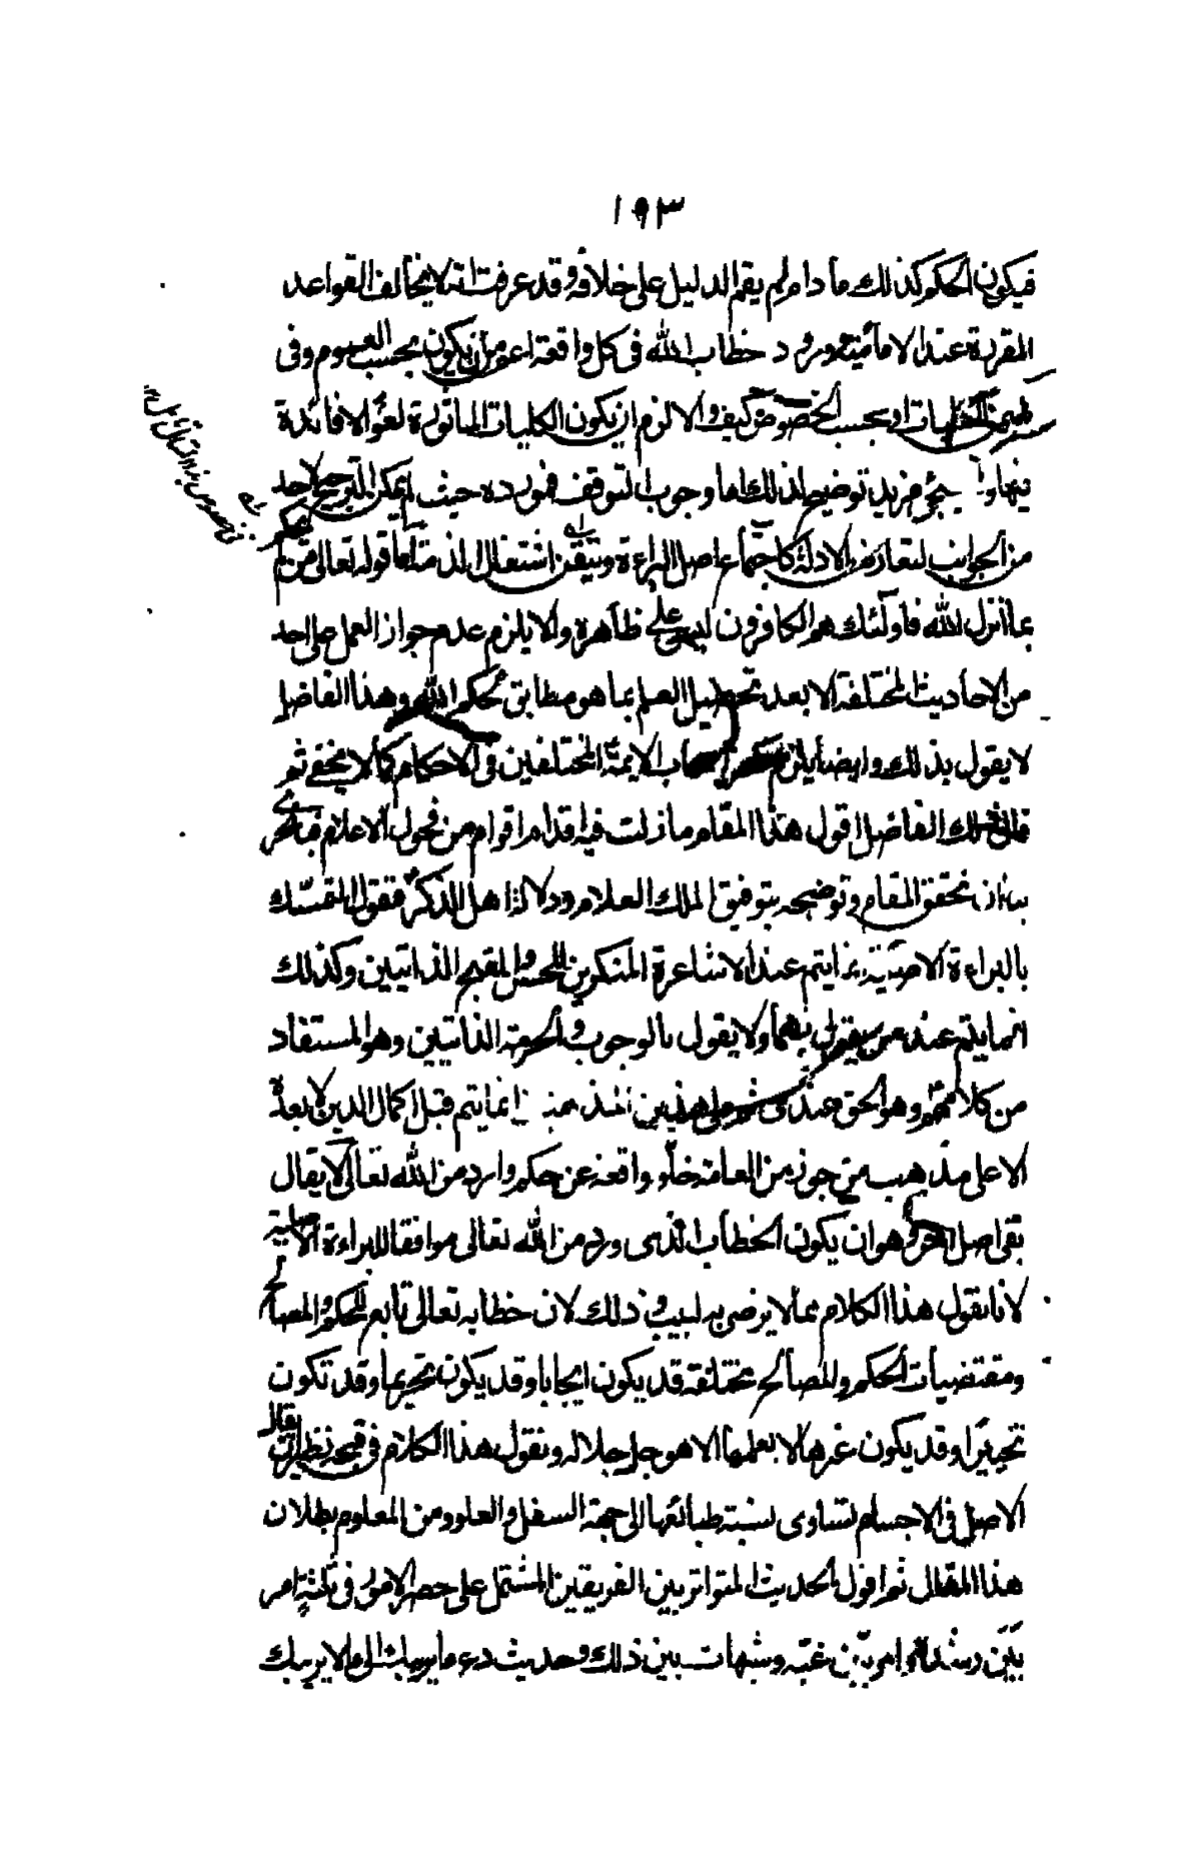 ١٩٣
فيكون الحكم كذلك ما دام لم يقم الدليل على خلافه وقد عرفت انه لا يخالف القواعد
المقررة عند الامامية ورود خطاب الله فى كل واقعة اعم من ان يكون بحسب العموم وفى
او بحسب الخصوص كيف والا لزم ان يكون الكليات الماثورة لغوا لا فائدة
فيها و سيجئ مزيد توضيح لذلك اما وجوب التوقف فمورده حيث لم يمكن الترجيح لاحد
من الجوانب لتعارض الادلة كاجتماع اصل البراءة وتيقن اشتغال الذمة اما قوله تعالى من لم يحكم
بما انزل الله فاولئك هم الكافرون ليس على ظاهره والا يلزم عدم جواز العمل على احد
من الاحاديث المختلفة الا بعد تحصيل العلم بما هو مطابق لحكم الله وهذا الفاضل
لا يقول بذلك وايضا يلزم اصحاب الايمة المختلفين فى الاحكام كما لا يخفى ثم
قال ذلك الفاضل اقول هذا المقام ما زلت فيه اقدام اقوام من فحول الاعلام
بنا ان نحقق المقام ونوضحه بتوفيق الملك العلام ودلالة اهل الذكر فنقول التمسك
بالبراءة الاصلية انما يتم عند الاشاعرة المنكرين للحسن والقبح الذاتيين وكذلك
انما يتم عند من يقول بهما ولا يقول بالوجوب والحرمة الذاتيين وهو المستفاد
من كلامهم وهو الحق عندى ثم على هذين المذهبين انما يتم قبل اكمال الدين لا بعده
الا على مذهب من جوز من العامة خلو واقعة عن حكم وارد من الله تعالى لا يقال
بقى اصل اخر وهو ان يكون الخطاب الذى ورد من الله تعالى موافقا للبراءة الاصلية
لانا نقول هذا الكلام مما لا يرضى به لبيب وذلك لان خطابه تعالى تابع للحكم والمصالح
ومقتضيات الحكم والمصالح مختلفة قد يكون ايجابا وقد يكون تحريما وقد تكون
تخييرا وقد يكون غيرها لا يعلمها الا هو جل جلاله ونقول هذا الكلام فى قبحه نظير ان يقال
الاصل فى الاجسام تساوى نسبة طبائعها الى جهة السفل والعلو ومن المعلوم بطلان
هذا المقال ثم اقول الحديث المتواتر بين الفريقين المشتمل على حصر الامور فى ثلثة امر
بين رشده وامر بين غيه وشبهات بين ذلك وحديث دع ما يريبك الى ما لا يريبك